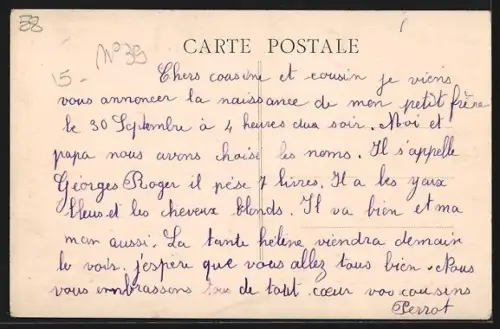 58
N°39
15-
CARTE POSTALE
Chers cousine et cousin je viens
vous annoncer la naissance de mon petit frère
le 30 Septembre à 4 heures du soir. Moi et
papa nous avons choisi les noms. Il s'appelle
Géorges Roger il pèse 7 livres. Il a les yaux
bleus et les cheveux blonds. Il va bien et ma
man aussi. La tante hélène viendra demain
le voir. j'espère que vous allez tous bien. Nous
vous embrassons de tout cœur vos cousins
Perrot